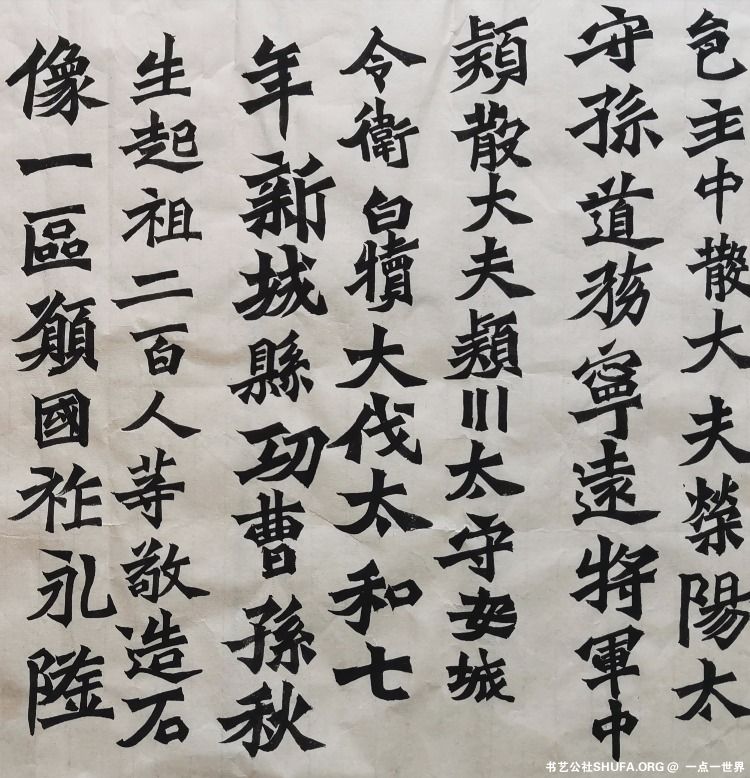 邑主中散大夫榮陽太
守孫道務寧遠將軍中
潁散大夫潁川太守安城
令衛白犢大伐太和七
年新城縣功曹孫秋
生起祖二百人等敬造石
像一區願國祚永隆
书艺公社SHUFA.ORG @ 一点一世界